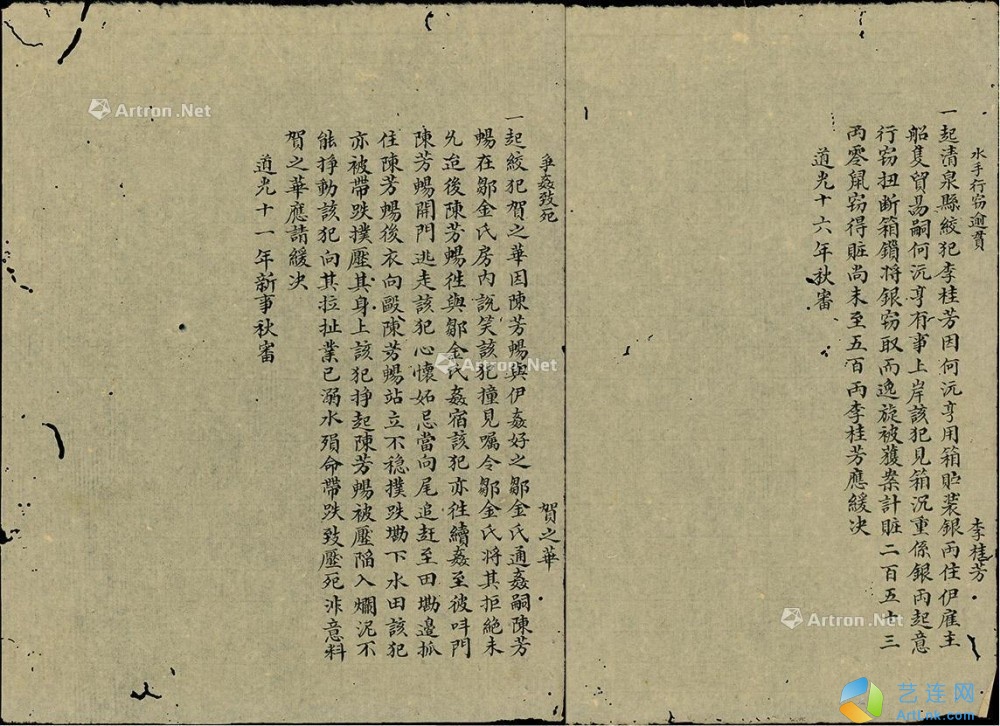 水手行窃逾貫
李桂芳
一起清泉縣絞犯李桂芳因何沅亨用箱貯裝銀兩住伊雇主
船隻貿易嗣何沅亨有事上岸該犯見箱沉重係銀兩起意
行窃扭断箱鎖將銀窃取而逸旋被獲案計賍二百五十三
兩零鼠窃得賍尚未至五百兩李桂芳應緩决
道光十六年秋審
爭姦致死
賀之華
一起絞犯賀之華因陳芳暢與伊姦好之鄒金氏通姦嗣陳芳
暢在鄒金氏房內說笑該犯撞見囑令鄒金氏將其拒絶未
允迨後陳芳暢徃與鄒金氏姦宿該犯亦徃續姦至彼呌門
陳芳暢開門逃走該犯心懷妬忌當向尾追赶至田墈邊抓
住陳芳暢後衣向毆陳芳暢站立不穩撲跌墈下水田該犯
亦被帶跌撲壓其身上該犯掙起陳芳暢被壓陷入爛泥不
能掙動該犯向其拉扯業已溺水殞命帶跌致壓死非意料
賀之華應請緩决
道光十一年新事秋審
Artron.Net
Artron.Net
Artron.Net
艺连网
ArtLnk.com